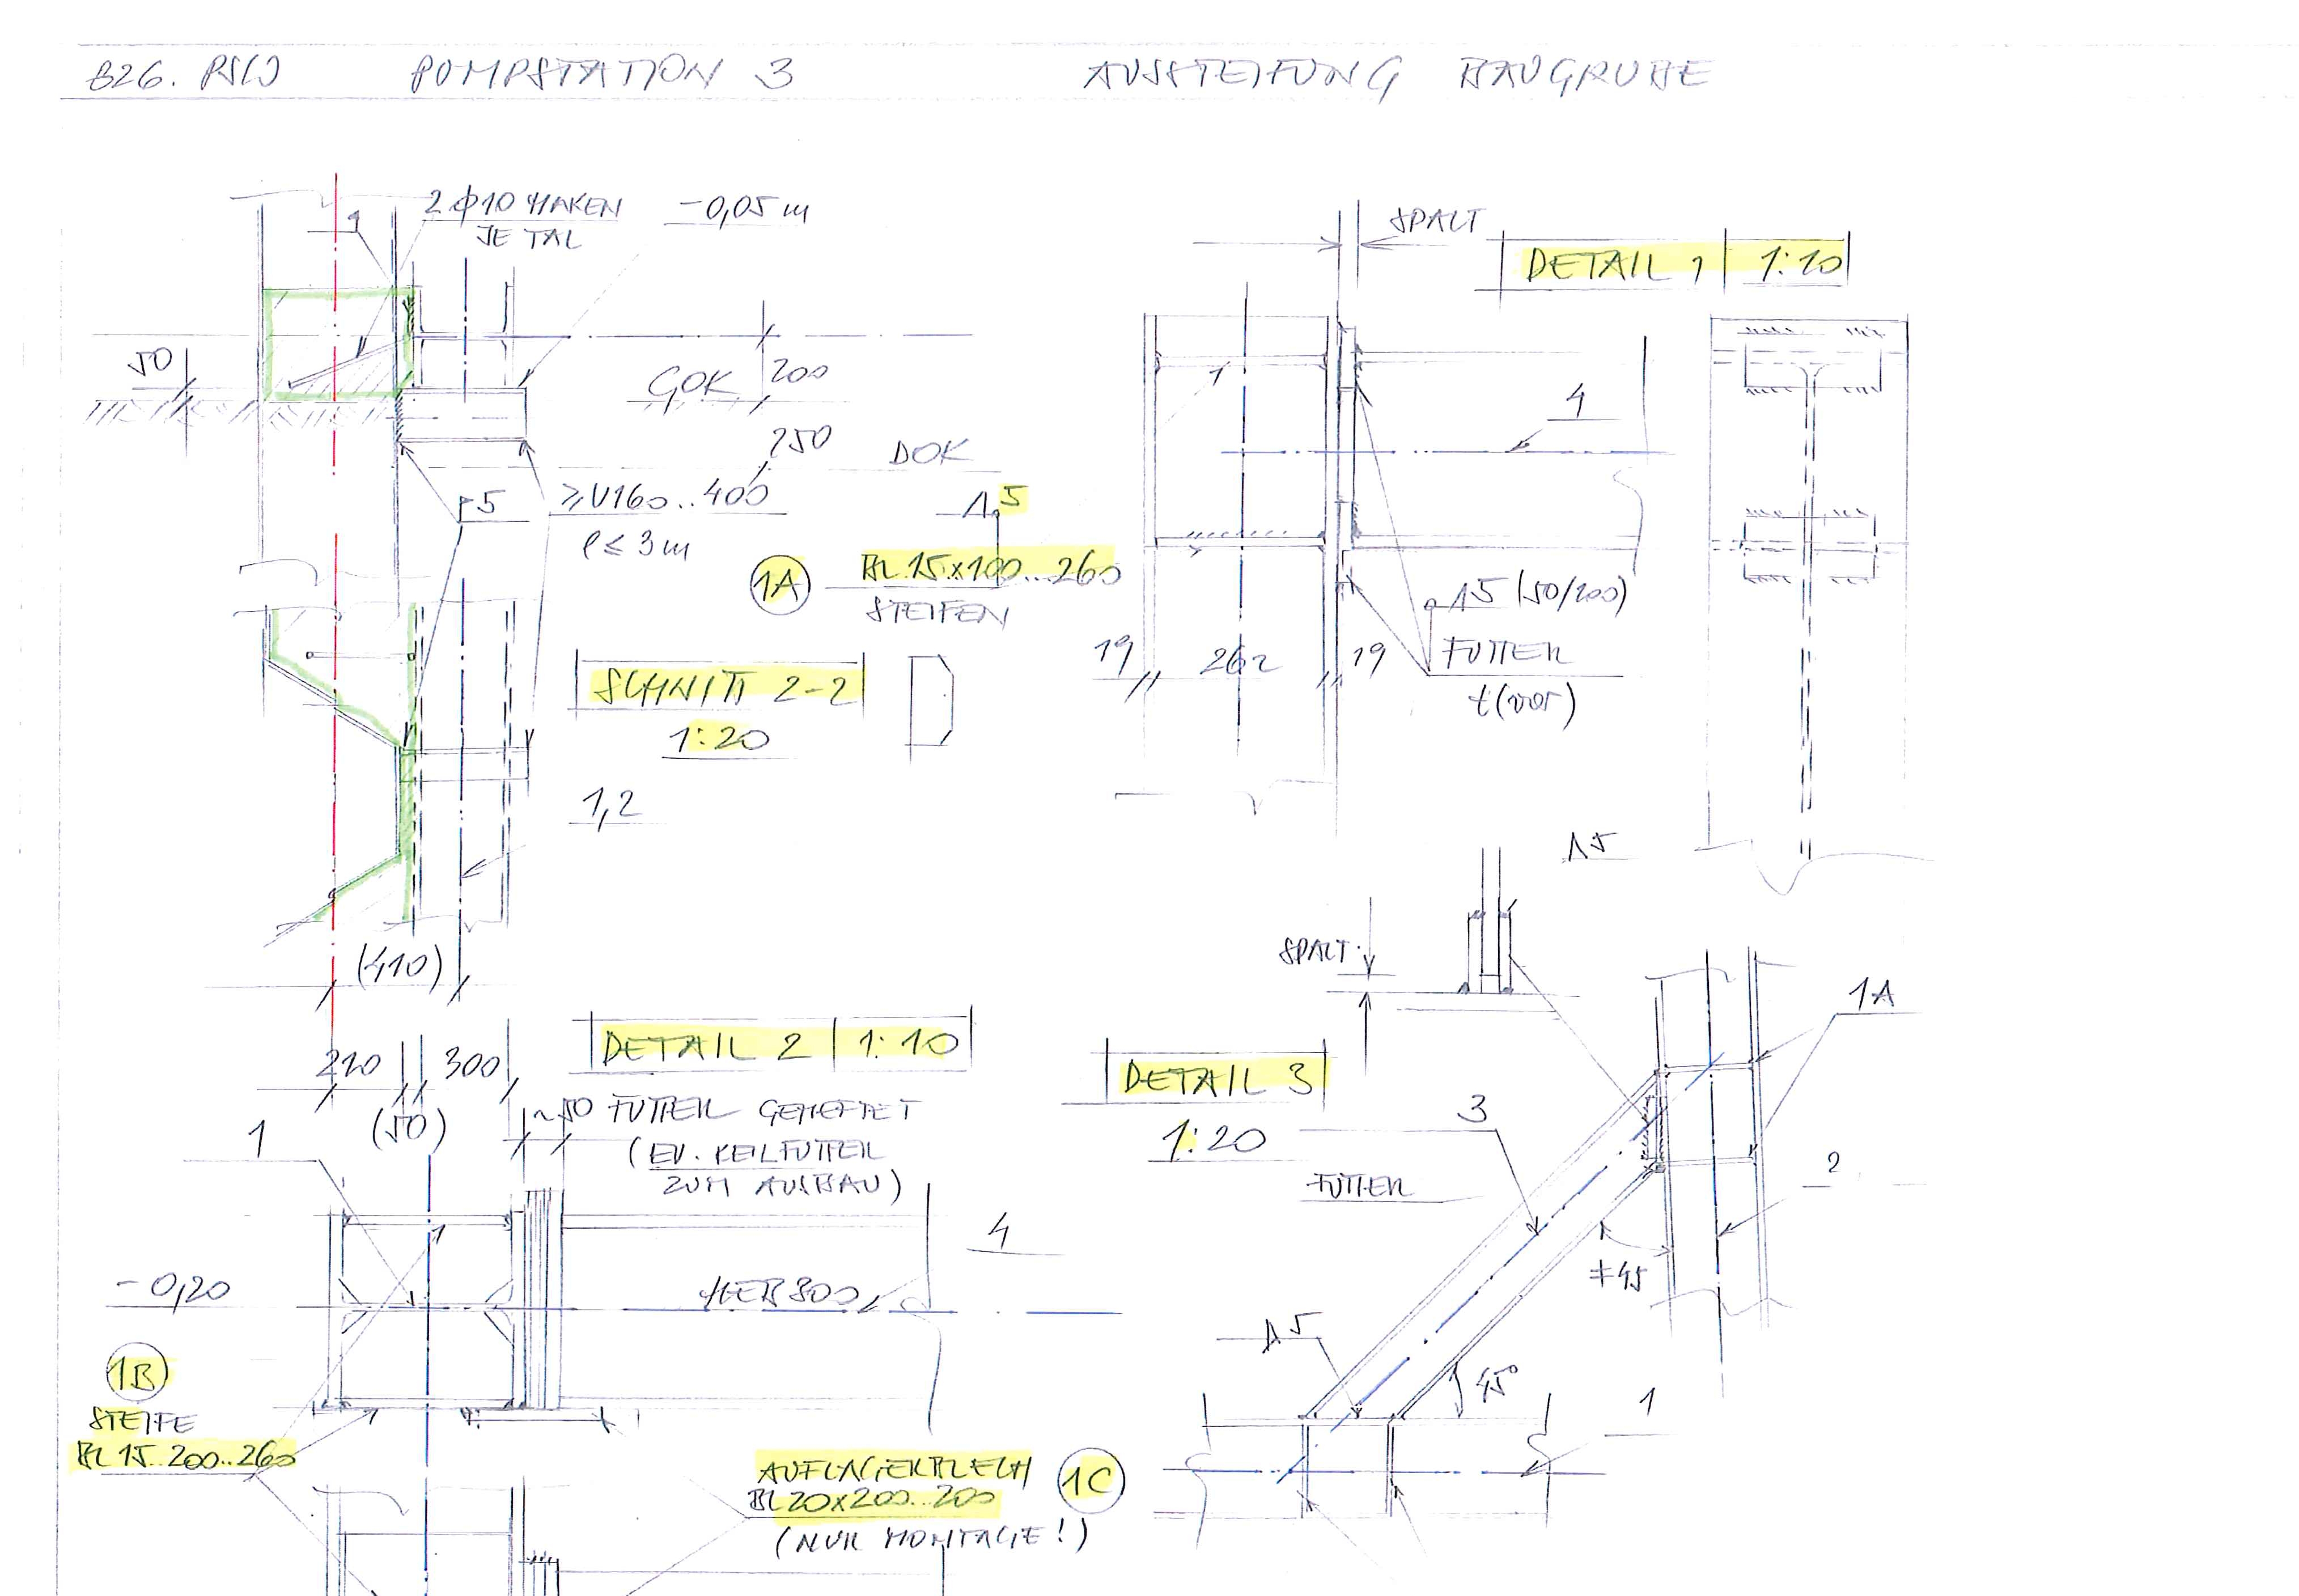 PUMPSTATION 3
AUSSTEIFUNG BAUGRUBE
2 ϕ10 HAKEN
JE TAL
-0,05 m
1
50
GOK
200
250
DOK
5
≥U160..400
l ≤ 3m
5
1A
BL 15x100...260
STEIFEN
SCHNITT 2-2
1:20
1,2
(410)
210
300
(50)
SPALT
DETAIL 1
1:10
1
4
5 (50/200)
FUTTER
t (var)
19
262
19
DETAIL 2
1:10
~50 FUTTER GEHEFTET
(EV. KEILFUTTER
ZUM AUSBAU)
1
1
4
-0,20
HEB 300
1B
STEIFE
BL 15..200..260
AUFLAGERBLECH
BL 20x200...200
(NUR MONTAGE!)
1C
5
SPALT
DETAIL 3
1:20
1A
3
FUTTER
2
≠45
5
45°
1